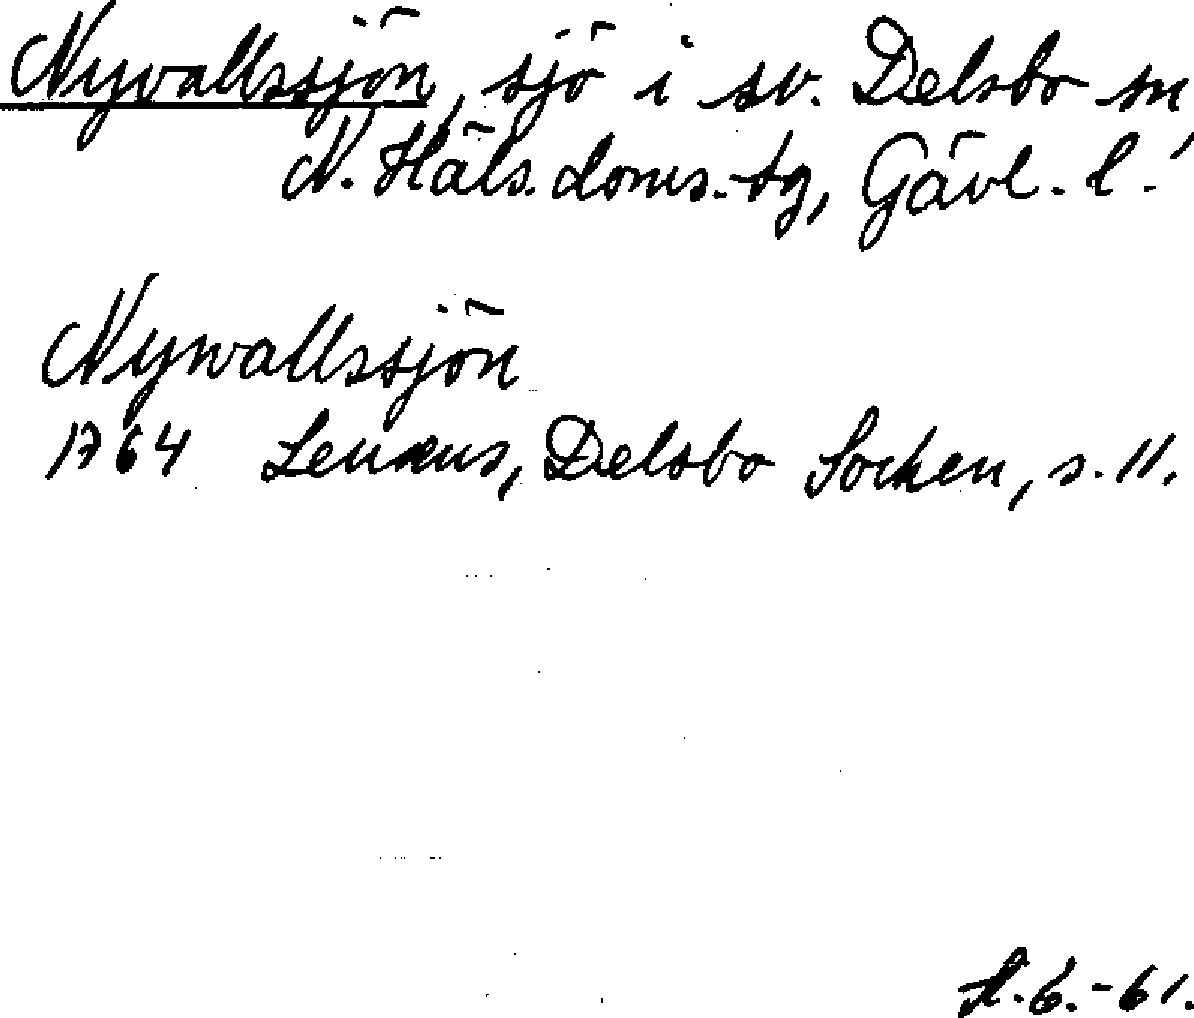 Nyvallssjön, sjö i sv. Delsbo sn,
N. Häls. doms.-tg, Gävl. l.
Nywallssjön
1764 Lenæus, Delsbo Socken, s. 11.
6.-61.